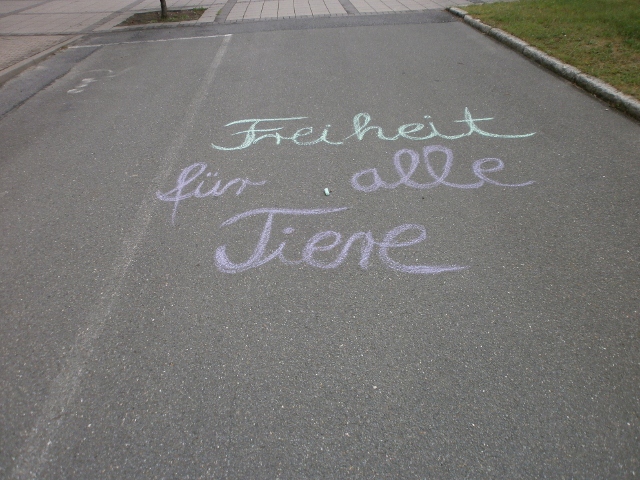 Freiheit
für alle
Tiere